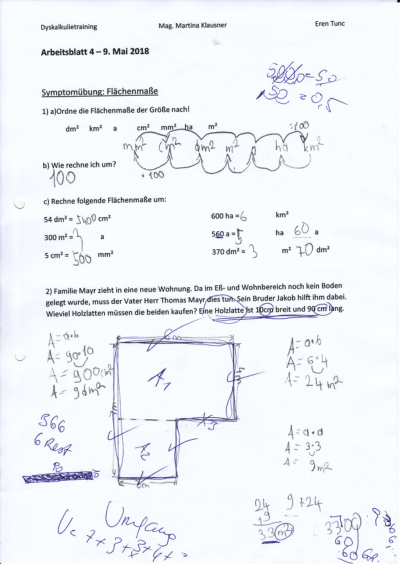 Dyskalkulietraining Mag. Martina Klausner Eren Tunc
Arbeitsblatt 4 – 9. Mai 2018
= 50
50 = 0,5
Symptomübung: Flächenmaße
1) a)Ordne die Flächenmaße der Größe nach!
dm² km² a cm² mm² ha m²
:100
mm² cm² dm² m² a ha km²
b) Wie rechne ich um?
100
· 100
c) Rechne folgende Flächenmaße um:
54 dm² = 5400 cm² 600 ha = 6 km²
300 m² = 3 a 560 a = 5 ha 60 a
5 cm² = 500 mm² 370 dm² = 3 m² 70 dm²
2) Familie Mayr zieht in eine neue Wohnung. Da im Eß- und Wohnbereich noch kein Boden
gelegt wurde, muss der Vater Herr Thomas Mayr dies tun. Sein Bruder Jakob hilft ihm dabei.
Wieviel Holzlatten müssen die beiden kaufen? Eine Holzlatte ist 10cm breit und 90 cm lang.
A = a·b
A = 90·10
A = 900cm²
A = 9dm²
A1
A2
A = a·b
A = 6·4
A = 24m²
A = a·a
A = 3·3
A = 9m²
366
6 Rest
24 9+24
33 m²
Umfang
U = 7+3+3+4+
3300 : 9
60
60